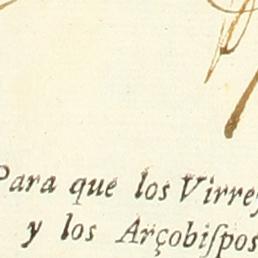 Para que los Virrey
y los Arçobiſpos